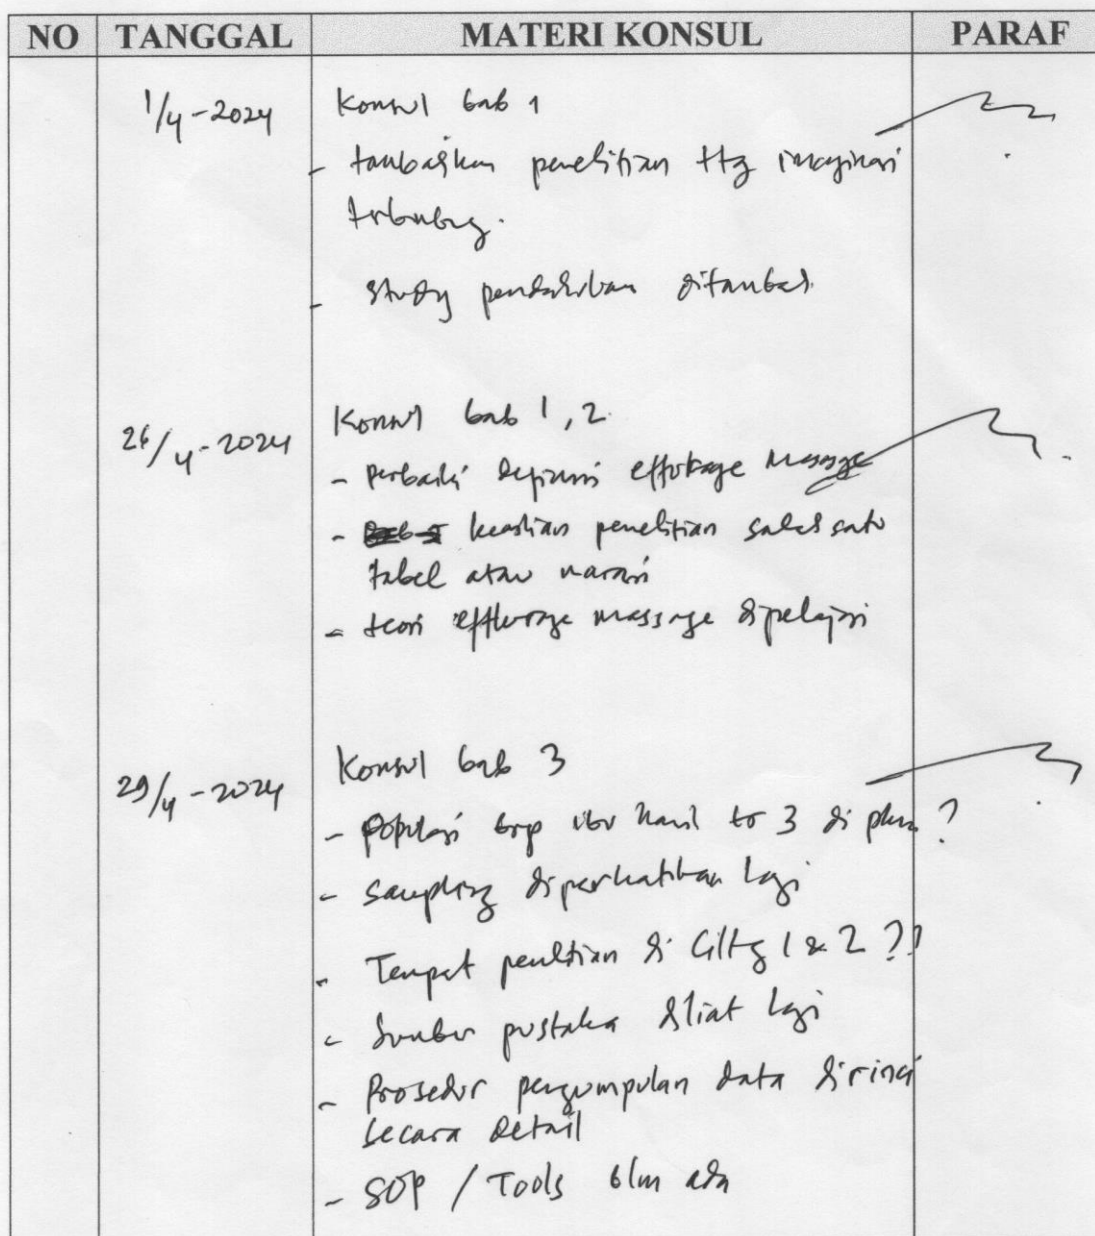 NO TANGGAL MATERI KONSUL PARAF
1/4-2024 Konsul bab 1
- tambahkan penelitian ttg imaginasi
terbimbing.
- Study pendahuluan ditambah.
26/4-2024 Konsul bab 1, 2
- Perbaiki definisi efflurage Massage
- keaslian penelitian salah satu
tabel atau narasi
- teori efflurage massage dipelajari
29/4-2024 Konsul bab 3
- Populasi brp ibu hamil tr 3 di pkm ?
- Sampling diperhatikan lagi
- Tempat penltian di 1 & 2 ??
- Sumber pustaka dliat lagi
- Prosedur pengumpulan data dirinci
secara detail
- SOP / Tools blm ada